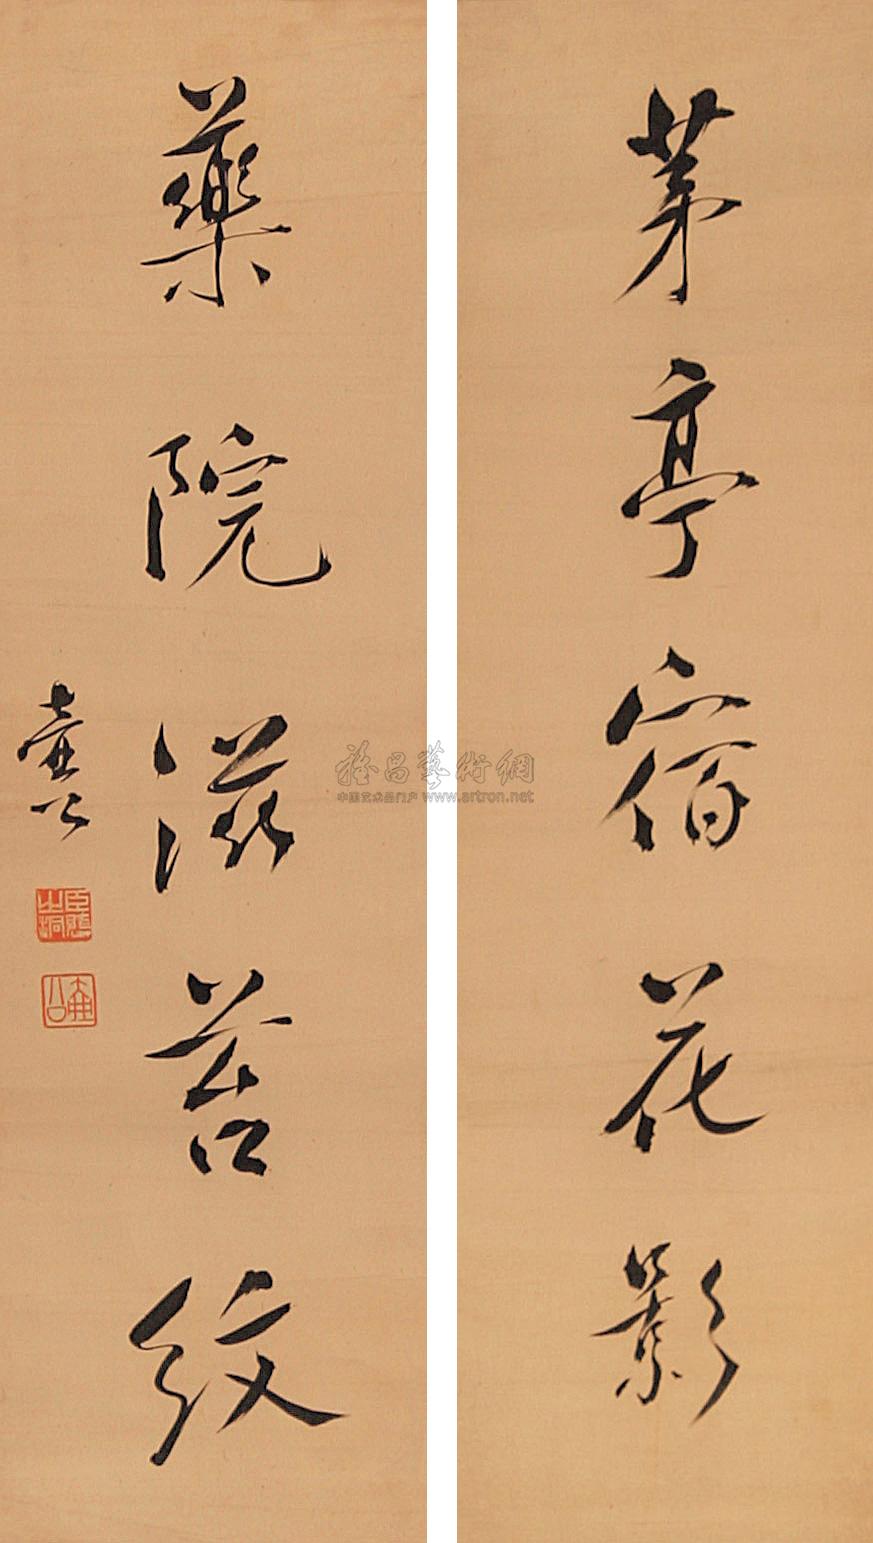 茅亭宿花影
藥院滋苔紋
壺公
雅昌藝術網
中国艺术品门户 www.artron.net